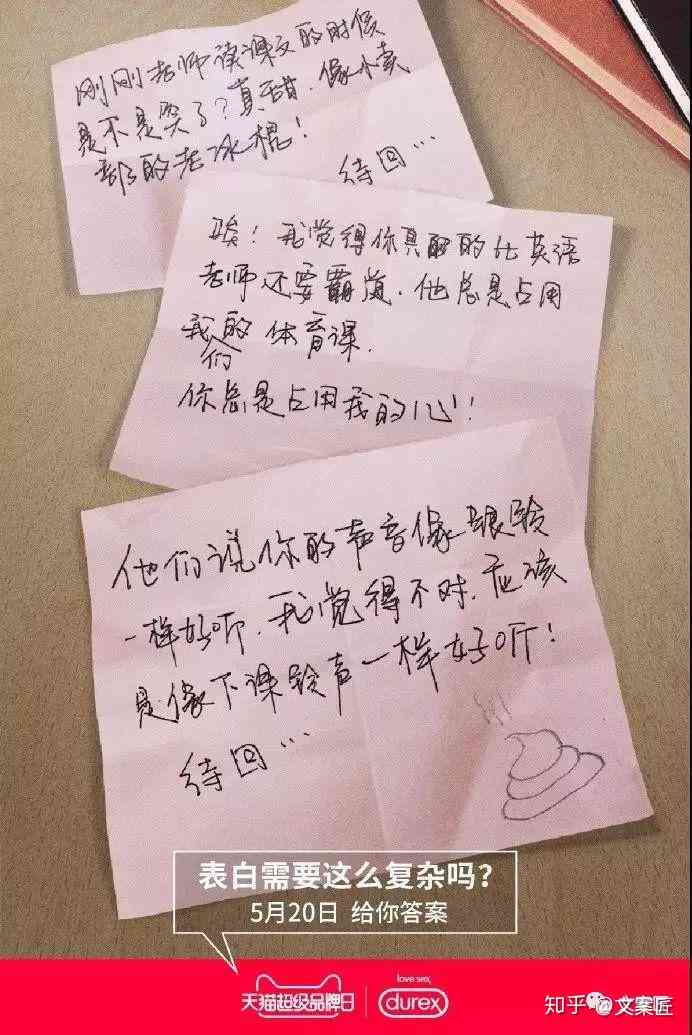 刚刚老师读课文的时候
是不是笑了?真甜.像小卖
部的老冰棍!
待回…
!我觉得你真的比英语
老师还要霸道.他总是占用
我们的体育课.
你总是占用我的心!
他们说你的声音像银铃
一样好听.我觉得不对.应该
是像下课铃声一样好听!
待回…
表白需要这么复杂吗?
5月20日 给你答案
天猫超级品牌日
love sex,
durex
知乎 @文案匠